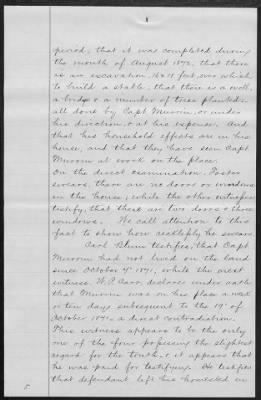 period, that it was completed during
the month of August 1872, that there
is an excavation 16 x 18 feet, over which
to build a stable, that there is a well,
a bridge & a number of trees planted,
all done by Capt or under
his direction, & at his expense. And
that his household effects are in his
house, and that they have seen Capt
at work on the place.
On the direct examination, Foster
swears, there are no doors or windows
in the house, while the other witnesses
testify, that there are two doors & three
windows. We call attention to this
fact to show how recklessly he swears
Carl Blum testifies, that Capt
had not lived on the land
since October 4th 1871, while the next
witness, W. P. Carr, declares under oath
that was on his place a week
or ten days subsequent to the 19th of
October 1871, a direct contradiction.
This witness appears to be the only
one of the four possessing the slightest
regard for the truth, & it appears that
he was paid for testifying. He testifies
that defendant left his homestead in
5.